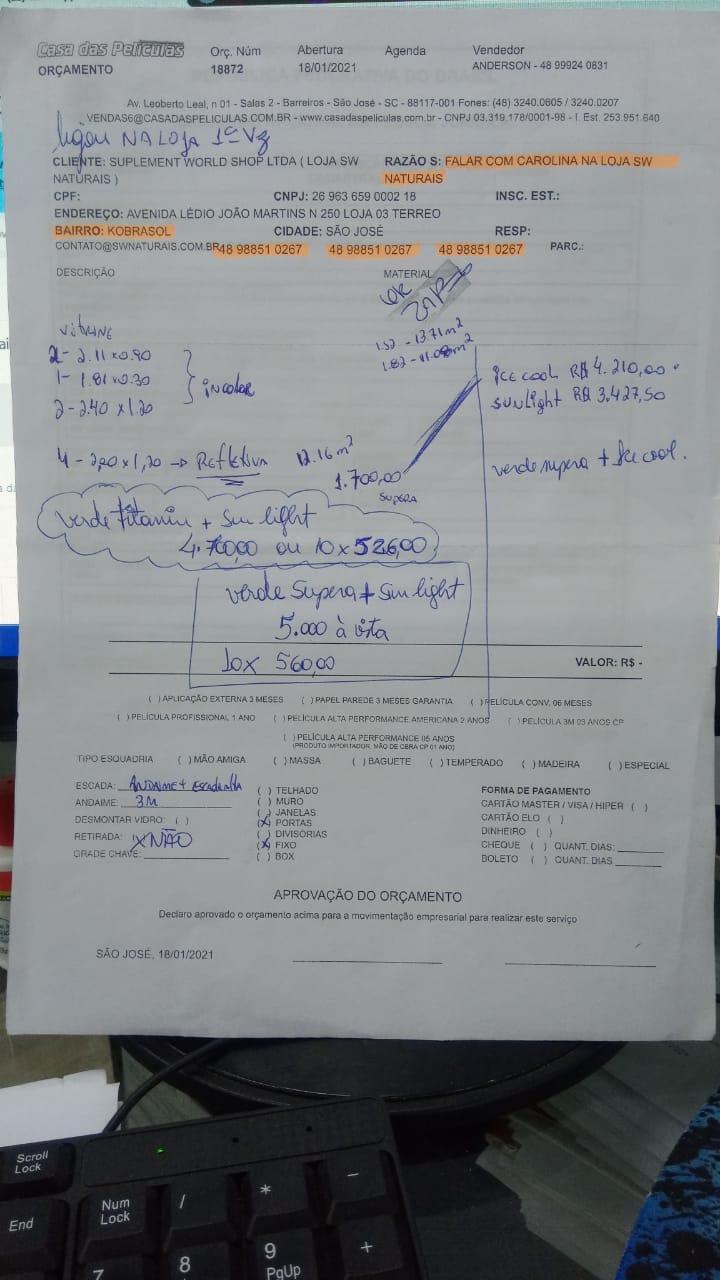 Casa das Películas
ORÇAMENTO
Orç. Núm
18872
Abertura
18/01/2021
Agenda
Vendedor
ANDERSON - 48 99924 0831
Av. Leoberto Leal, n 01 - Salas 2 - Barreiros - São José - SC - 88117-001 Fones: (48) 3240.0605 / 3240.0207
VENDAS6@CASADASPELICULAS.COM.BR - www.casadaspeliculas.com.br - CNPJ 03.319.178/0001-98 - I. Est. 253.951.640
ligou NA LOJA 1ª Vz
CLIENTE: SUPLEMENT WORLD SHOP LTDA ( LOJA SW NATURAIS )
RAZÃO S: FALAR COM CAROLINA NA LOJA SW NATURAIS
CPF: CNPJ: 26 963 659 0002 18 INSC. EST.:
ENDEREÇO: AVENIDA LÉDIO JOÃO MARTINS N 250 LOJA 03 TERREO
BAIRRO: KOBRASOL CIDADE: SÃO JOSÉ RESP:
CONTATO@SWNATURAIS.COM.BR 48 98851 0267 48 98851 0267 48 98851 0267 PARC.:
DESCRIÇÃO MATERIAL
OK
ZAP
1.52 - 13.71 m²
1.82 - 11.08 m²
VITRINE
2 - 2.11 x 0.90
1 - 1.81 x 0.30
2 - 2.40 x 1.20
incolor
ice cool R$ 4.210,00
sunlight R$ 3.427,50
4 - 2,20 x 1,20 → Refletiva 12.16 m²
1.700,00
SUPERA
verde supera + Ice cool.
verde titanium + Sun light
4.700,00 ou 10 x 526,00
verde Supera + Sun light
5.000 à vista
10x 560,00
VALOR: R$ -
( ) APLICAÇÃO EXTERNA 3 MESES ( ) PAPEL PAREDE 3 MESES GARANTIA ( ) PELÍCULA CONV. 06 MESES
( ) PELÍCULA PROFISSIONAL 1 ANO ( ) PELÍCULA ALTA PERFORMANCE AMERICANA 2 ANOS ( ) PELÍCULA 3M 03 ANOS CP
( ) PELÍCULA ALTA PERFORMANCE 05 ANOS
(PRODUTO IMPORTADOR, MÃO DE OBRA CP 01 ANO)
TIPO ESQUADRIA ( ) MÃO AMIGA ( ) MASSA ( ) BAGUETE ( ) TEMPERADO ( ) MADEIRA ( ) ESPECIAL
ESCADA: ANDAIME + Escada Alta
ANDAIME: 3M
DESMONTAR VIDRO: ( )
RETIRADA: X NÃO
GRADE CHAVE:
( ) TELHADO
( ) MURO
( ) JANELAS
(X) PORTAS
( ) DIVISÓRIAS
(X) FIXO
( ) BOX
FORMA DE PAGAMENTO
CARTÃO MASTER / VISA / HIPER ( )
CARTÃO ELO ( )
DINHEIRO ( )
CHEQUE ( ) QUANT. DIAS:
BOLETO ( ) QUANT. DIAS
APROVAÇÃO DO ORÇAMENTO
Declaro aprovado o orçamento acima para a movimentação empresarial para realizar este serviço
SÃO JOSÉ, 18/01/2021
Scroll Lock
End
Num Lock
/
*
-
7
8
9
PgUp
+